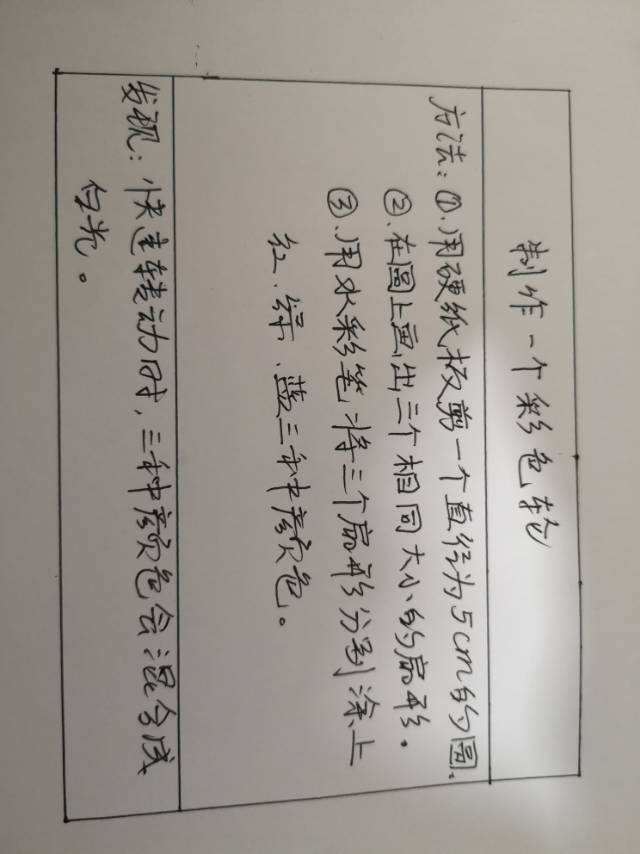 制作一个彩色轮
方法：①.用硬纸板剪一个直径为5cm的圆.
②.在圆上画出三个相同大小的扇形.
③.用水彩笔将三个扇形分别涂上
红.绿.蓝三种颜色。
发现：快速转动时,三种颜色会混合成
白光。